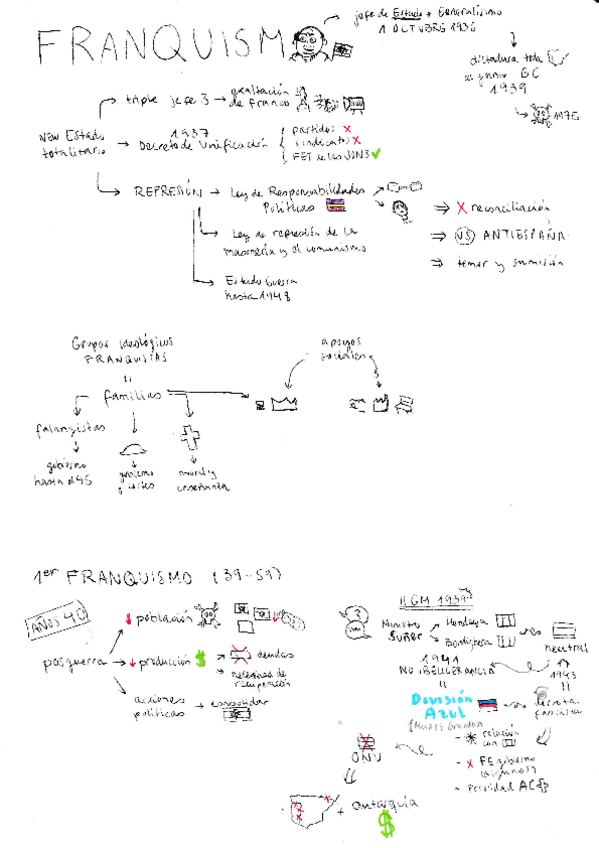 FRANQUISMO
jefe de Estado + Generalísimo
1 OCTUBRE 1936
dictadura toda
GC
1939
1975
triple jefe 3 → exaltación
de Franco
New Estado
totalitario
1937
Decreto de Unificación
partidos X
sindicatos X
FET de las JONS ✓
REPRESIÓN → Ley de Responsabilidades
Políticas
⇒ X reconciliación
⇒ VS ANTIESPAÑA
⇒ temor y sumisión
Ley de represión de la
masonería y el comunismo
Estado Guerra
hasta 1948
Grupos ideológicos
FRANQUISTAS
"
familias
apoyos
sociales
falangistas
gobierno
hasta el 45
moral y
enseñanza
1er FRANQUISMO (39-59)
AÑOS 40
posguerra
↓ población
↓ producción $
deudas
necesidad de
recuperación
acciones
políticas → consolidar
IIGM 1939
Ministro
Suñer
Hendaya
Bordighera
neutral
1941
NO BELIGERANCIA
1943
División
Azul
derrota
fascista
(Muñoz Grandes)
- relación
con
- X FE gobierno
- Prioridad AC
ONU
+ autarquía
$